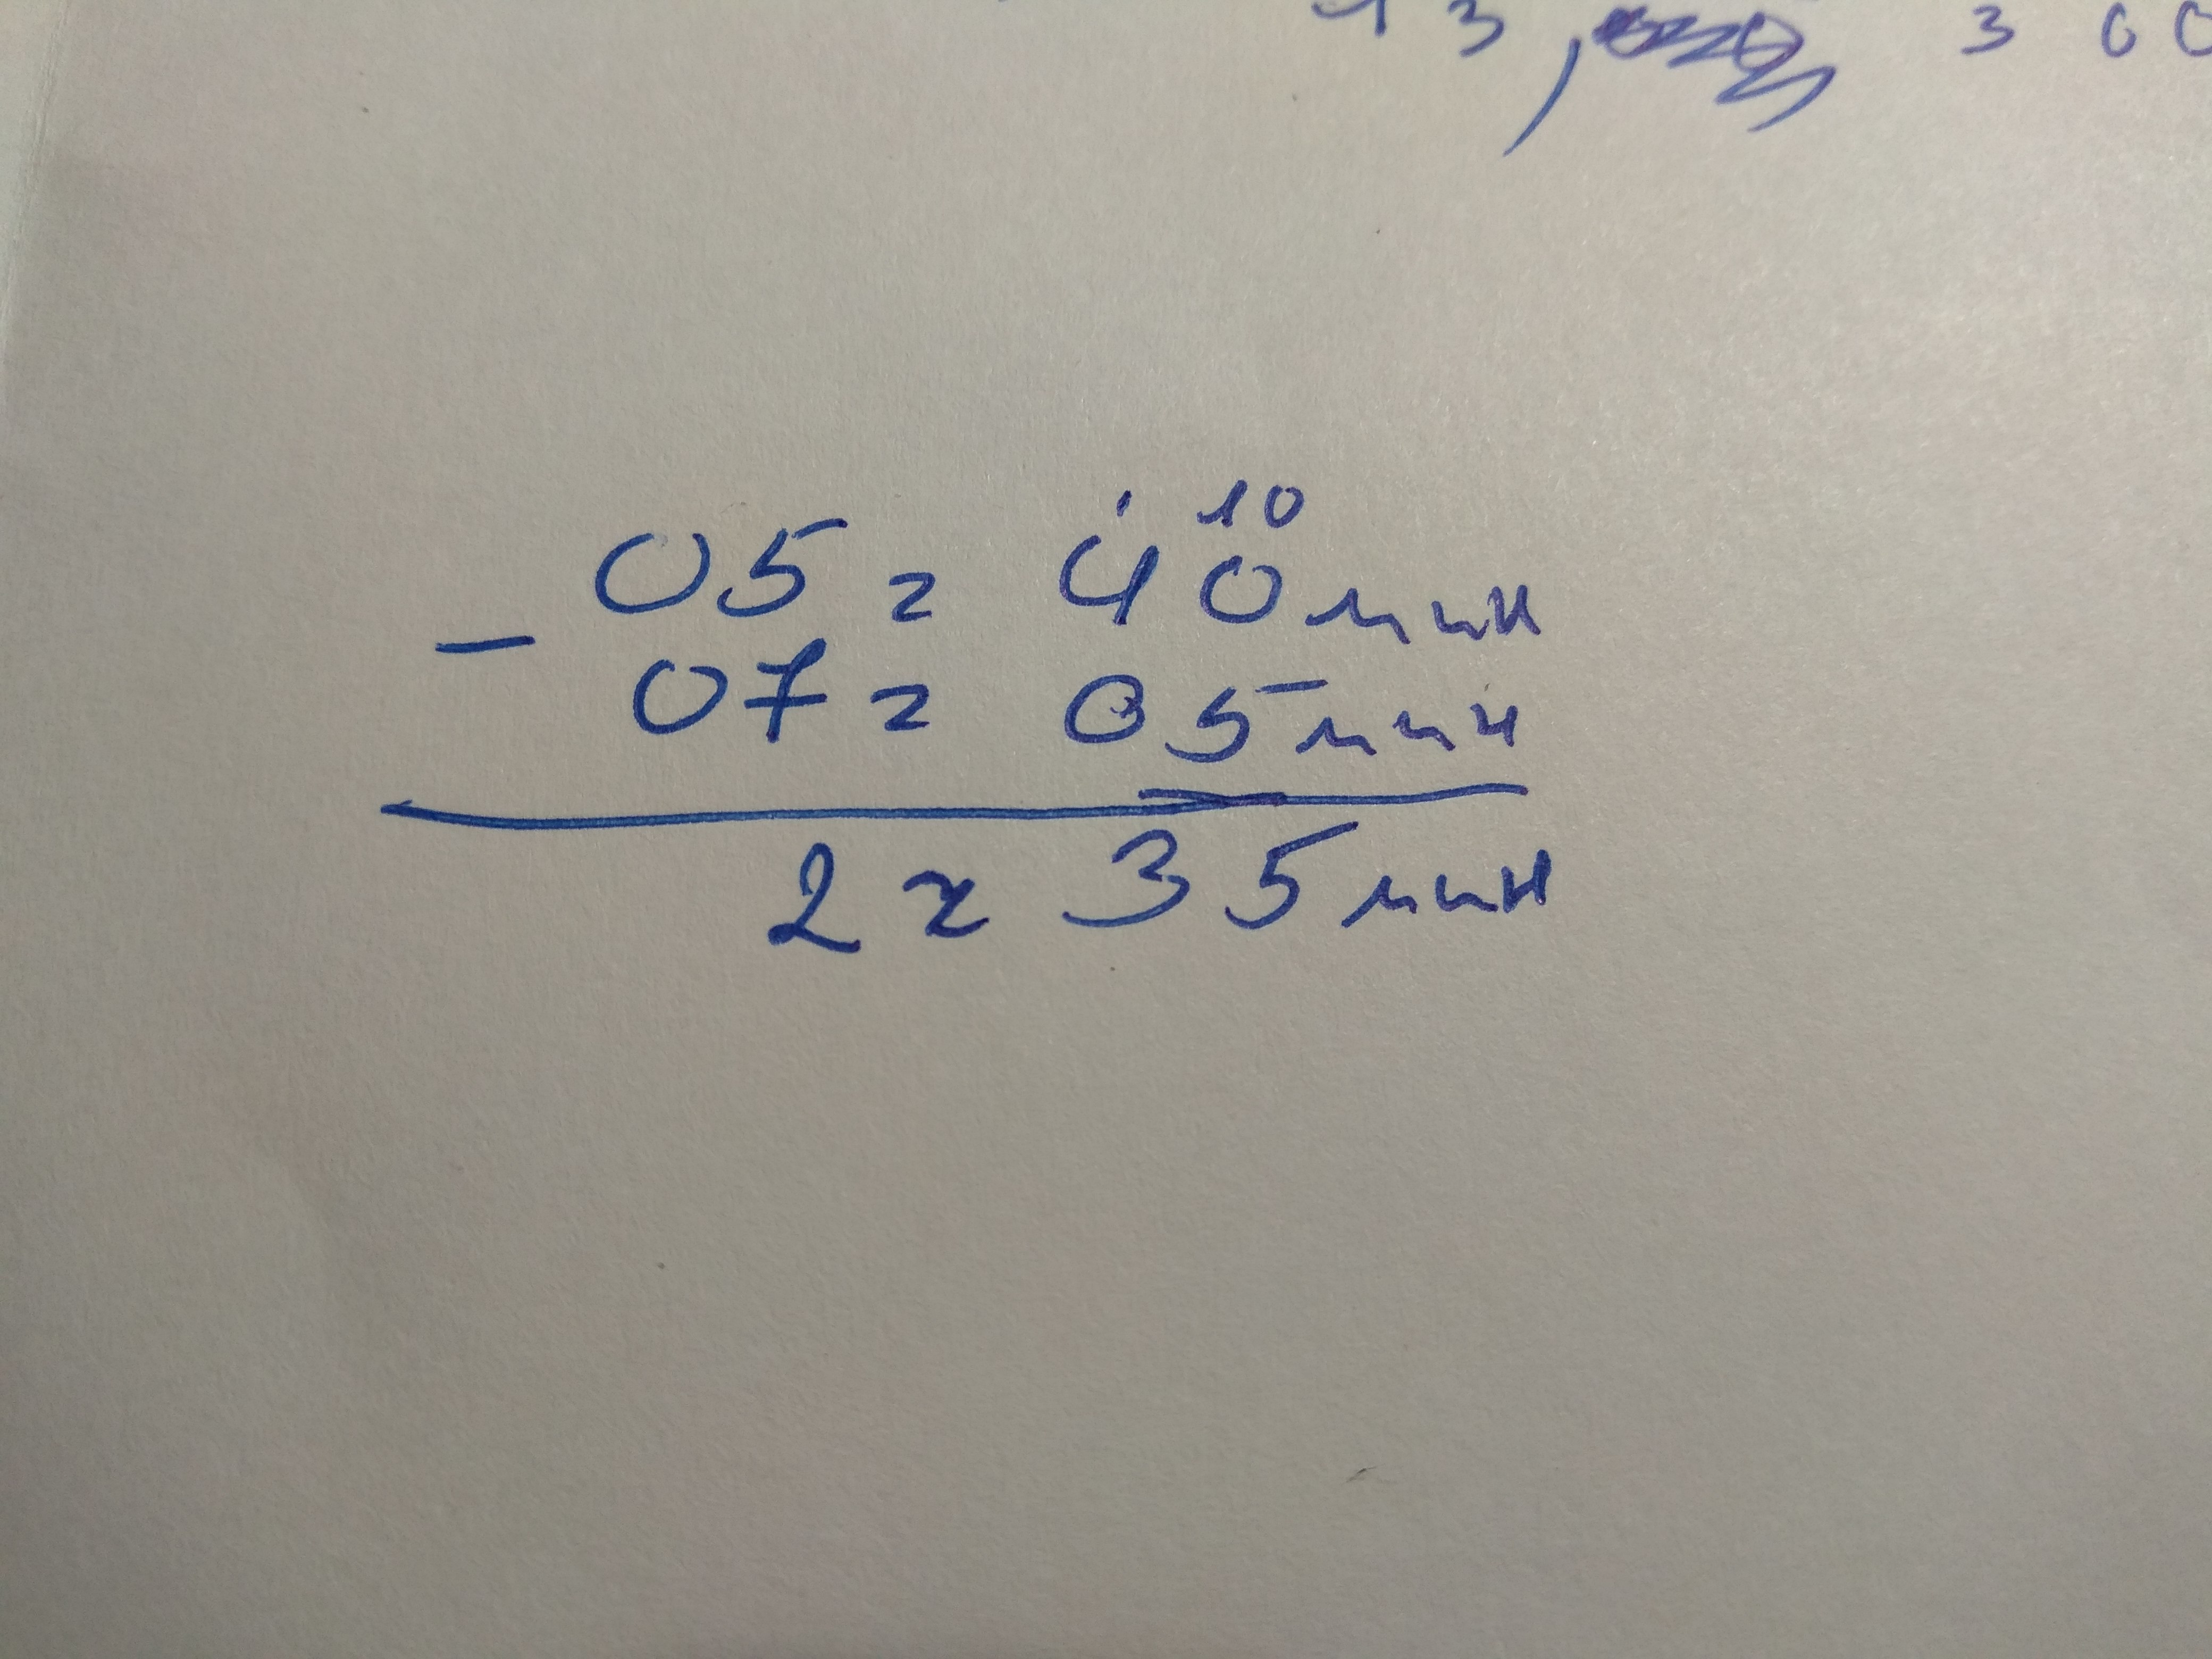 13, 3 00
10
- 05 г 40 мин
07 г 05 мин
2 г 35 мин